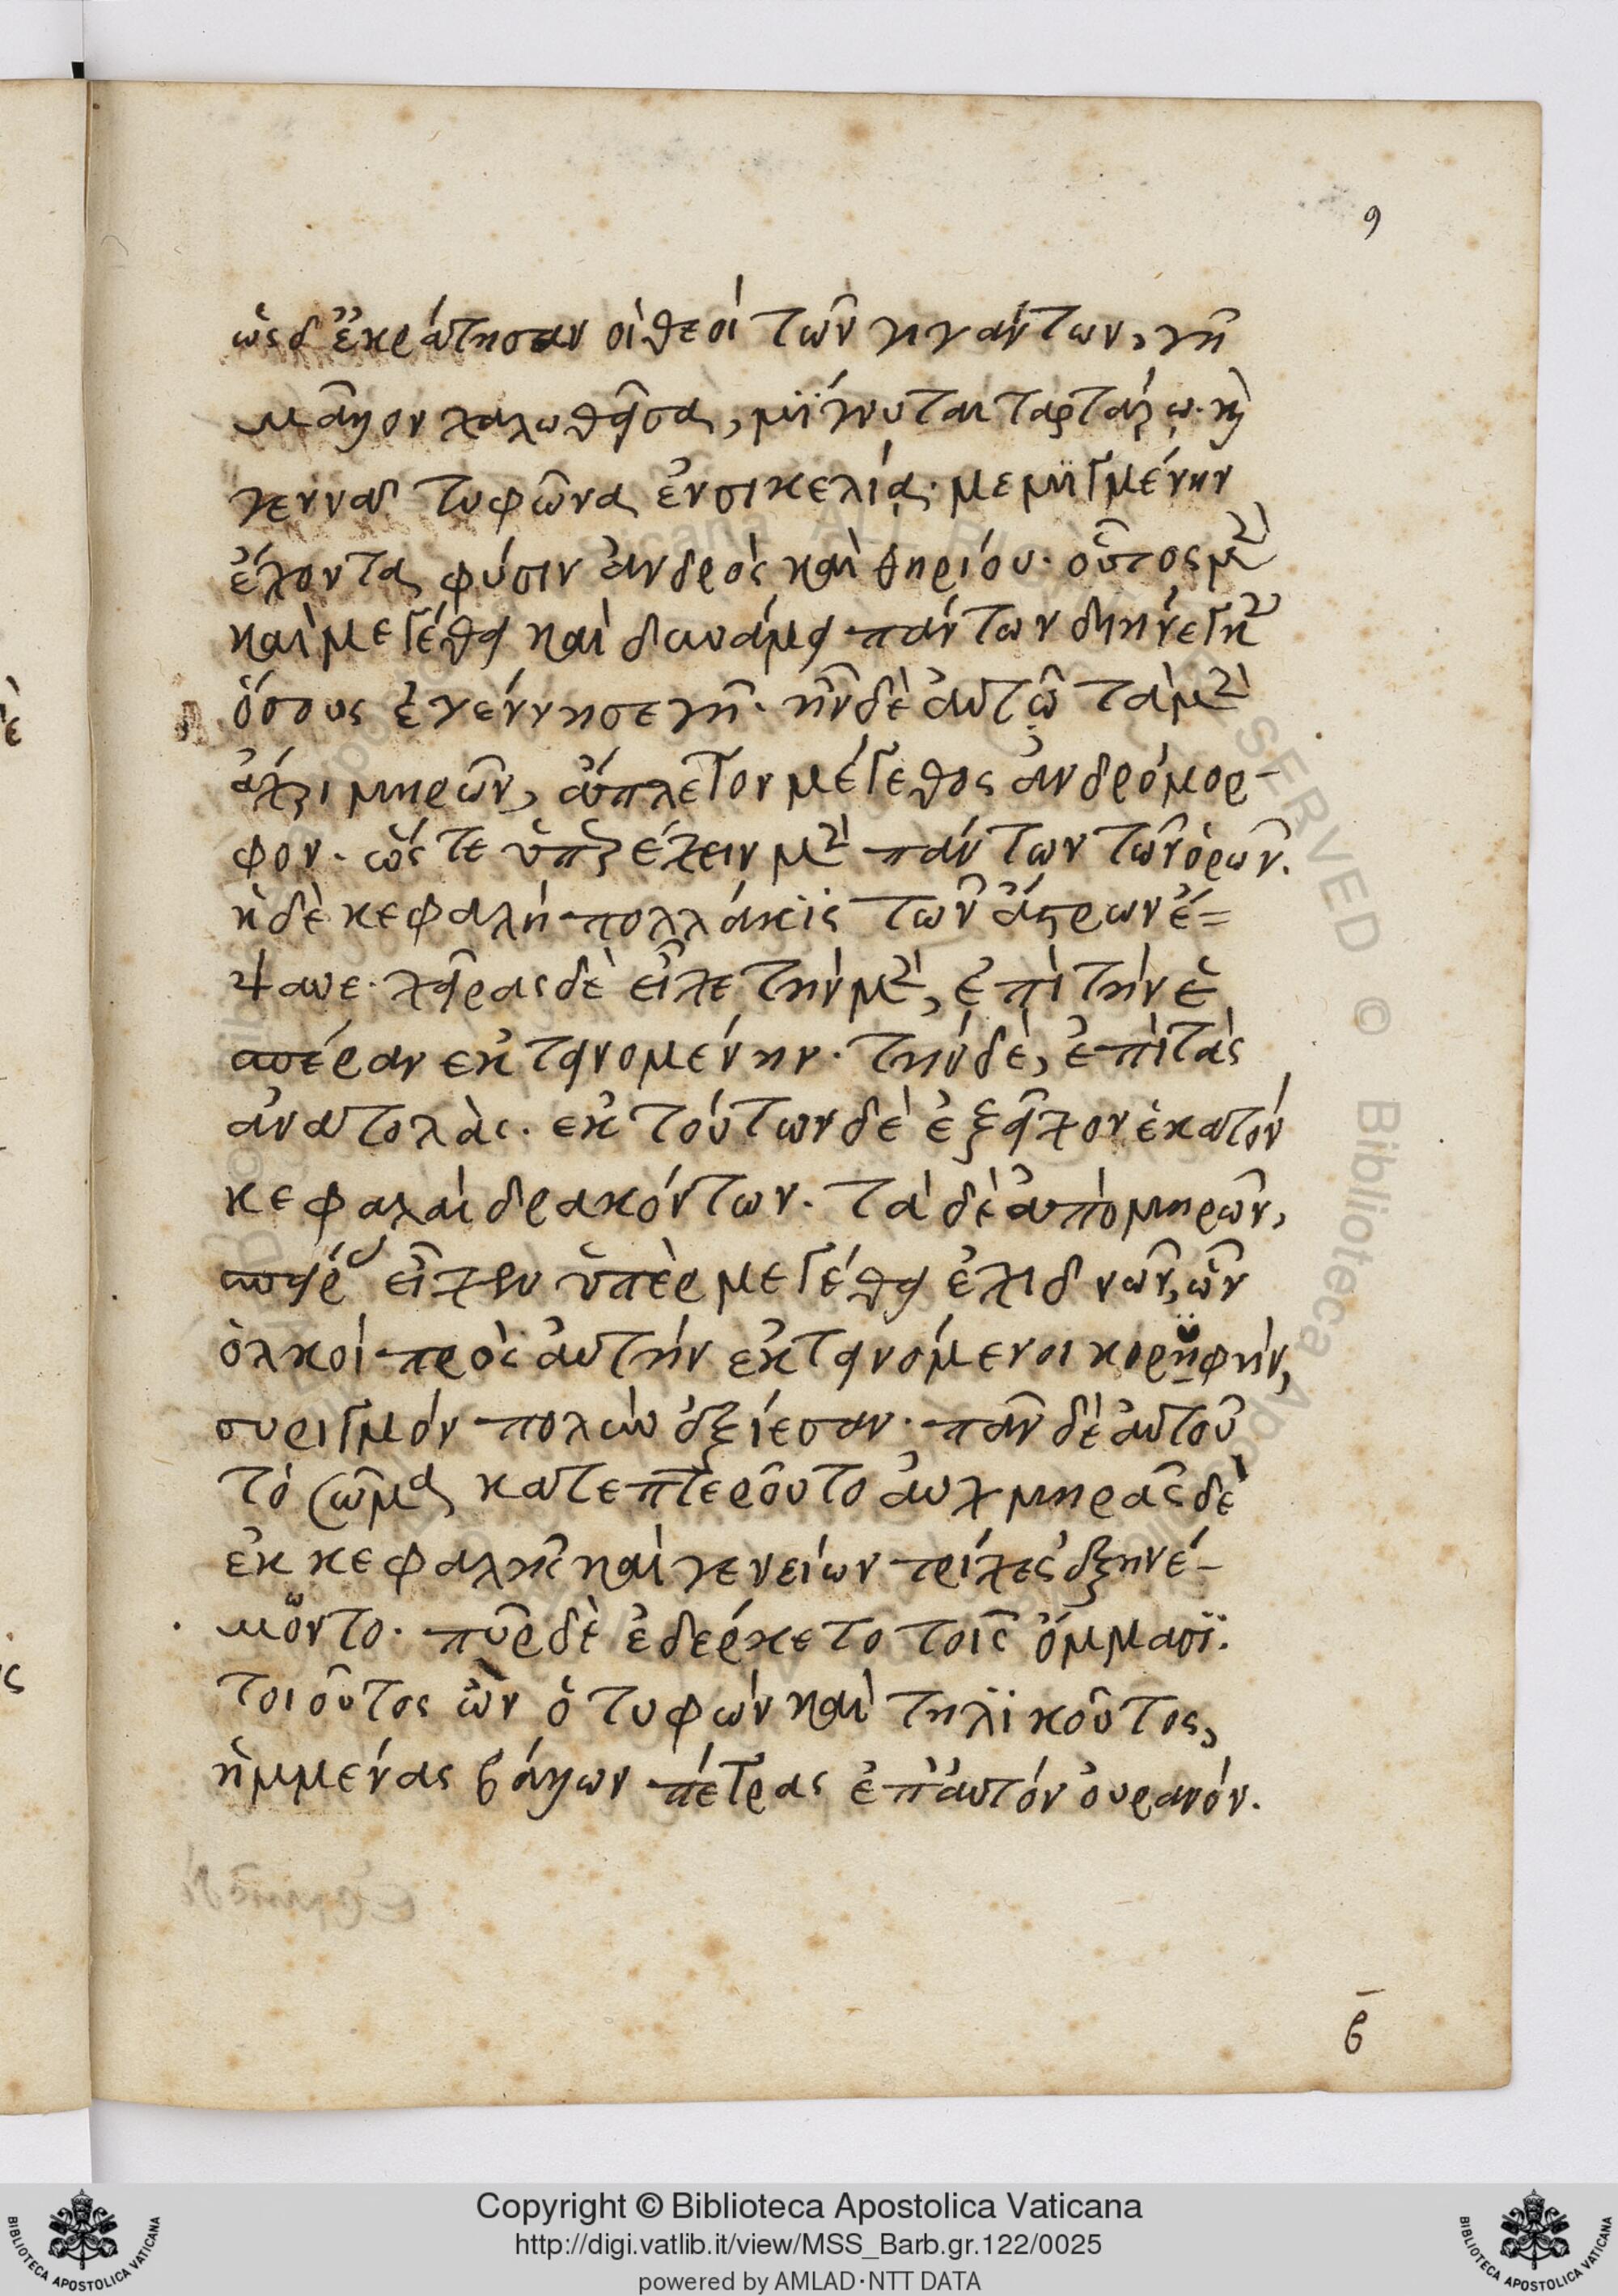 9
ὡς δ' ἐκράτησαν οἱ θεοὶ τῶν γιγάντων, γῆ
μᾶλλον χολωθεῖσα, μίγνυται ταρτάρω. καὶ
γεννᾶ τυφῶνα ἐν σικελία. μεμιγμένην
ἔχοντα φύσιν ἀνδρὸς καὶ θηρίου. οὗτος μὲν
καὶ μεγέθει καὶ δυνάμει πάντων διήνεγκεν
ὅσους ἐγέννησε γῆ. ἦν δὲ αὐτῶ τὰ μὲν
ἄχρι μηρῶν, ἄπλετον μέγεθος ἀνδρόμορ-
φον. ὥς τε ὑπερέχειν μὲν πάντων τῶν ὀρῶν.
ἡ δὲ κεφαλὴ πολλάκις τῶν ἄστρων ἔ=
ψαυε. χεῖρας δὲ εἶχε τὴν μὲν, ἐπὶ τὴν ἑ
σπέραν ἐκτεινομένην. τὴν δὲ, ἐπὶ τὰς
ἀνατολὰς. ἐκ τούτων δὲ ἐξεῖχον ἑκατὸν
κεφαλαὶ δρακόντων. τὰ δὲ ἀπὸ μηρῶν,
σπείρας εἶχεν ὑπὲρ μεγέθει ἐχιδνῶν, ὧν
ὁλκοὶ πρὸς αὐτὴν ἐκτεινόμενοι κορηφήν,
συριγμὸν πολὺν ἐξίεσαν. πᾶν δὲ αὐτοῦ
τὸ σῶμα κατεπτεροῦτο αὐχμηρᾶς δὲ
ἐκ κεφαλῆς καὶ γενείων τρίχες ἐξηνέ-
μοντο. πῦρ δὲ ἐδέρκετο τοῖς ὄμμασϊ.
τοιοῦτος ὢν ὁ τυφὼν καὶ τηλϊκοῦτος,
ἡμμένας βάλλων πέτρας ἐπ' αὐτὸν οὐρανόν.
β̄
Copyright © Biblioteca Apostolica Vaticana
http://digi.vatlib.it/view/MSS_Barb.gr.122/0025
powered by AMLAD·NTT DATA
BIBLIOTECA APOSTOLICA VATICANA
BIBLIOTECA APOSTOLICA VATICANA